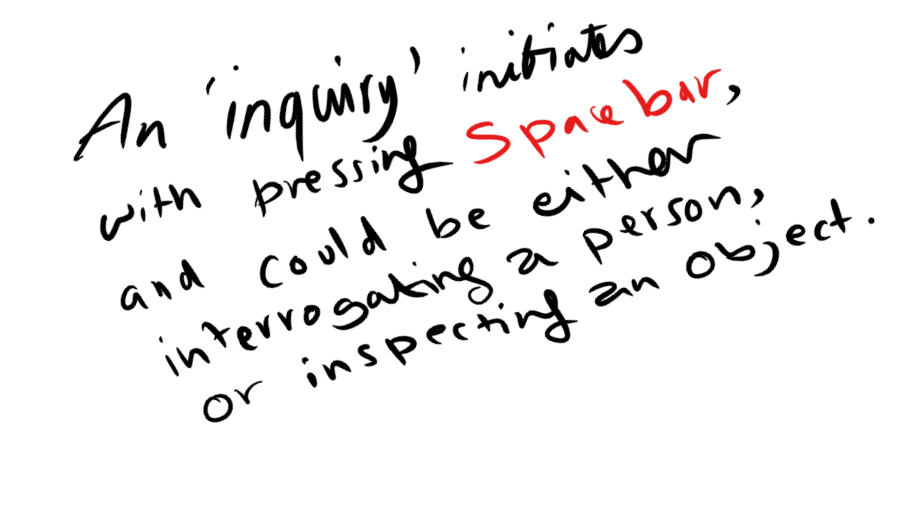 An 'inquiry' initiates
with pressing Spacebar,
and could be either
interrogating a person,
or inspecting an object.